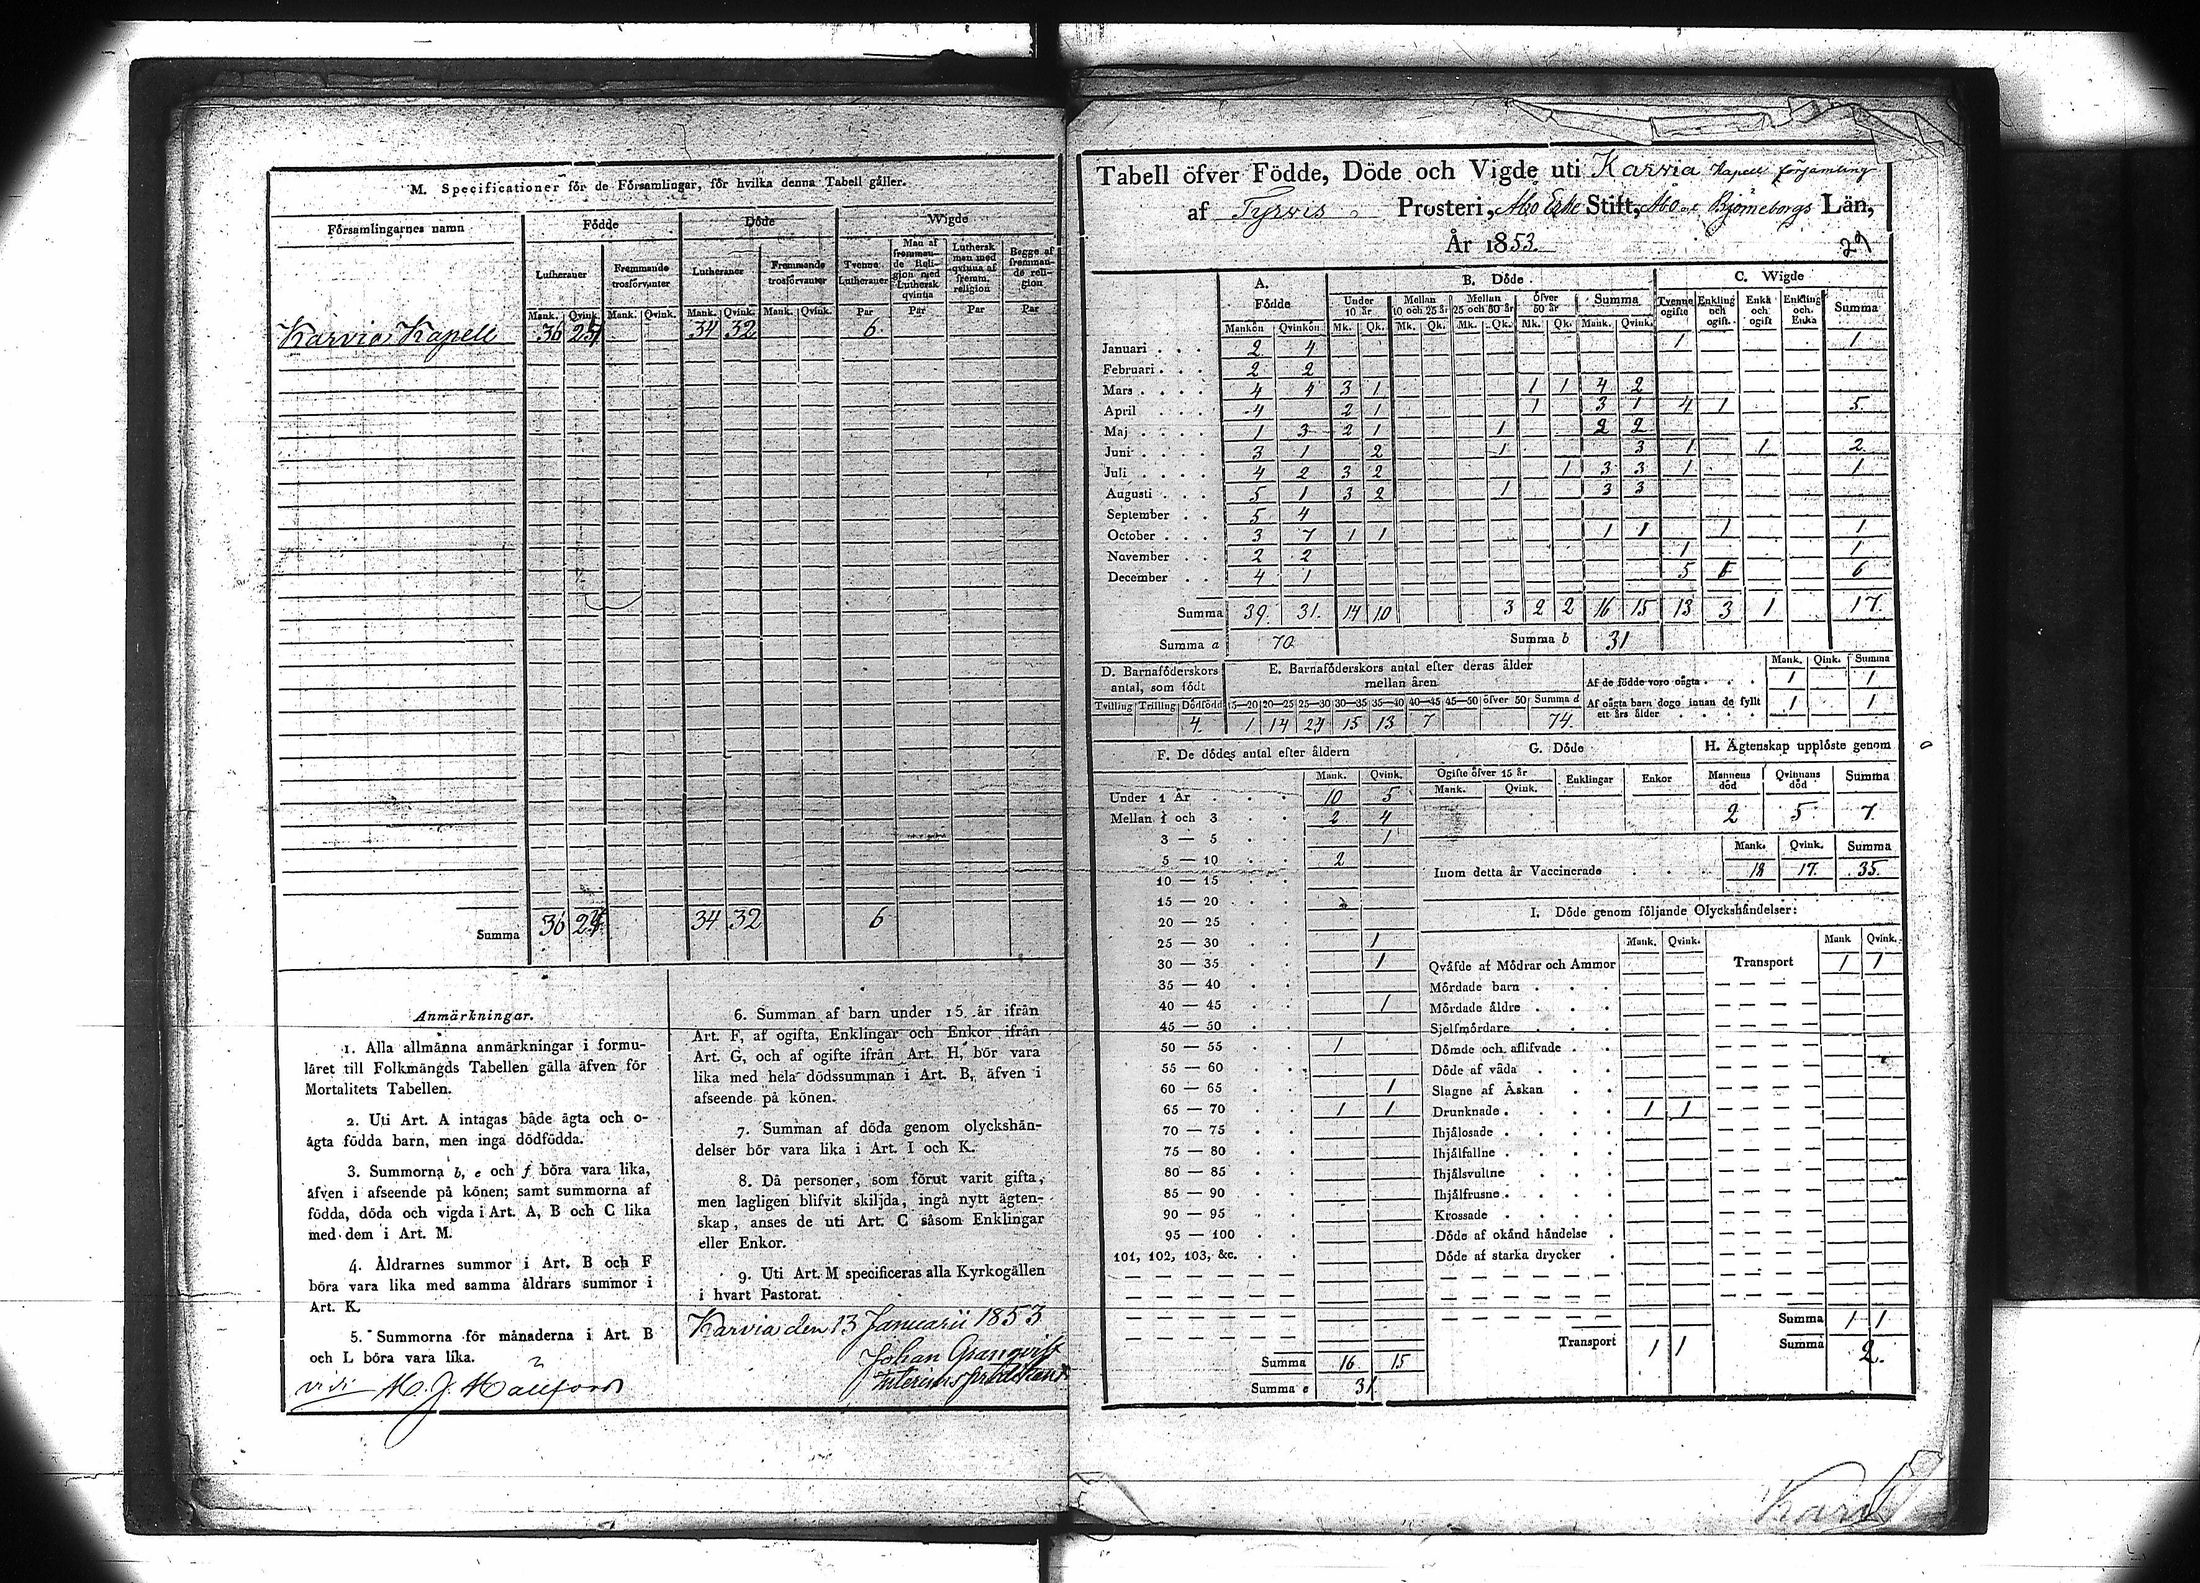 M. Specificationer för de Församlingar, för hvilka denna Tabell gäller.
Församlingarnes namn | Födde | Döde | Wigde
Lutheraner | Fremmande trosförvanter | Lutheraner | Fremmande trosförvanter | Tvenne Lutheraner | Man af fremmande Religion med Luthersk qvinna | Luthersk man med qvinna af fremm. religion | Begge af fremmande religion
Mank. | Qvink. | Mank. | Qvink. | Mank. | Qvink. | Mank. | Qvink. | Par | Par | Par | Par
Karvia Kapell 36 34 32 6.
Summa 36 34 32 6
Anmärkningar.
1. Alla allmänna anmärkningar i formu-
läret till Folkmängds Tabellen gälla äfven för
Mortalitets Tabellen.
2. Uti Art. A intagas både ägta och o-
ägta födda barn, men inga dödfödda.
3. Summorna b, e och f böra vara lika,
äfven i afseende på könen; samt summorna af
födda, döda och vigda i Art. A, B och C lika
med dem i Art. M.
4. Åldrarnes summor i Art. B och F
böra vara lika med samma åldrars summor i
Art. K.
5. Summorna för månaderna i Art. B
och L böra vara lika.
vidi
6. Summan af barn under 15 år ifrån
Art. F, af ogifta, Enklingar och Enkor ifrån
Art. G, och af ogifte ifrån Art. H, bör vara
lika med hela dödssumman i Art. B, äfven i
afseende på könen.
7. Summan af döda genom olyckshän-
delser bör vara lika i Art. I och K.
8. Då personer, som förut varit gifta,
men lagligen blifvit skiljda, ingå nytt ägten-
skap, anses de uti Art. C såsom Enklingar
eller Enkor.
9. Uti Art. M specificeras alla Kyrkogällen
i hvart Pastorat.
Karvia den 13 Januarii 1853
Johan Granqvist
Tabell öfver Födde, Döde och Vigde uti Karvia Kapell församling
af Tyrvis Prosteri, Åbo Erke Stift, Åbo och Björneborgs Län,
År 1853. 29
A. Födde | B. Döde | C. Wigde
Under 10 år | Mellan 10 och 25 år | Mellan 25 och 50 år | Öfver 50 år | Summa | Tvenne ogifte | Enkling och ogift | Enka och ogift | Enkling och Enka | Summa
Mankön | Qvinkön | Mk. | Qk. | Mk. | Qk. | Mk. | Qk. | Mk. | Qk. | Mank. | Qvink.
Januari 2 4 1 1
Februari 2 2
Mars 4 4 3 1 1 1 4 2
April 4 2 1 1 3 1 4 1 5.
Maj 1 3 2 1 1 2 2
Juni 3 1 2 1 3 1 1 2
Juli 4 2 3 2 1 3 3 1 1
Augusti 5 1 3 2 1 3 3
September 5 4
October 3 7 1 1 1 1 1 1
November 2 2 1 1
December 4 1 5 6
Summa 39. 31. 14 10 3 2 2 16 15 13 3 1 17.
Summa a 70 Summa b 31
D. Barnaföderskors antal, som födt
Tvilling | Trilling | Dödfödd
4.
E. Barnaföderskors antal efter deras ålder mellan åren
15—20 | 20—25 | 25—30 | 30—35 | 35—40 | 40—45 | 45—50 | öfver 50 | Summa d
1 14 24 15 13 7 74.
Mank. | Qink. | Summa
Af de födde voro oägta 1 1
Af oägta barn dogo innan de fyllt ett års ålder 1 1
F. De dödes antal efter åldern
Mank. | Qvink.
Under 1 År 10 5
Mellan 1 och 3 2 4
3 — 5 1
5 — 10 2
10 — 15
15 — 20
20 — 25
25 — 30 1
30 — 35 1
35 — 40
40 — 45 1
45 — 50
50 — 55 1
55 — 60
60 — 65 1
65 — 70 1 1
70 — 75
75 — 80
80 — 85
85 — 90
90 — 95
95 — 100
101, 102, 103, &c.
Summa 16 15
Summa e 31
G. Döde
Ogifte öfver 15 år | Enklingar | Enkor
Mank. | Qvink.
H. Ägtenskap upplöste genom
Mannens död | Qvinnans död | Summa
2 5 7
Mank. | Qvink. | Summa
Inom detta år Vaccinerade 18 17. 35.
I. Döde genom följande Olyckshändelser:
Mank. | Qvink. | Mank | Qvink.
Qväfde af Mödrar och Ammor Transport 1 1
Mördade barn
Mördade äldre
Sjelfmördare
Dömde och aflifvade
Döde af våda
Slagne af Åskan
Drunknade 1 1
Ihjälosade
Ihjälfallne
Ihjälsvultne
Ihjälfrusne
Krossade
Döde af okänd händelse
Döde af starka drycker
Summa 1 1
Transport 1 1 Summa 2.